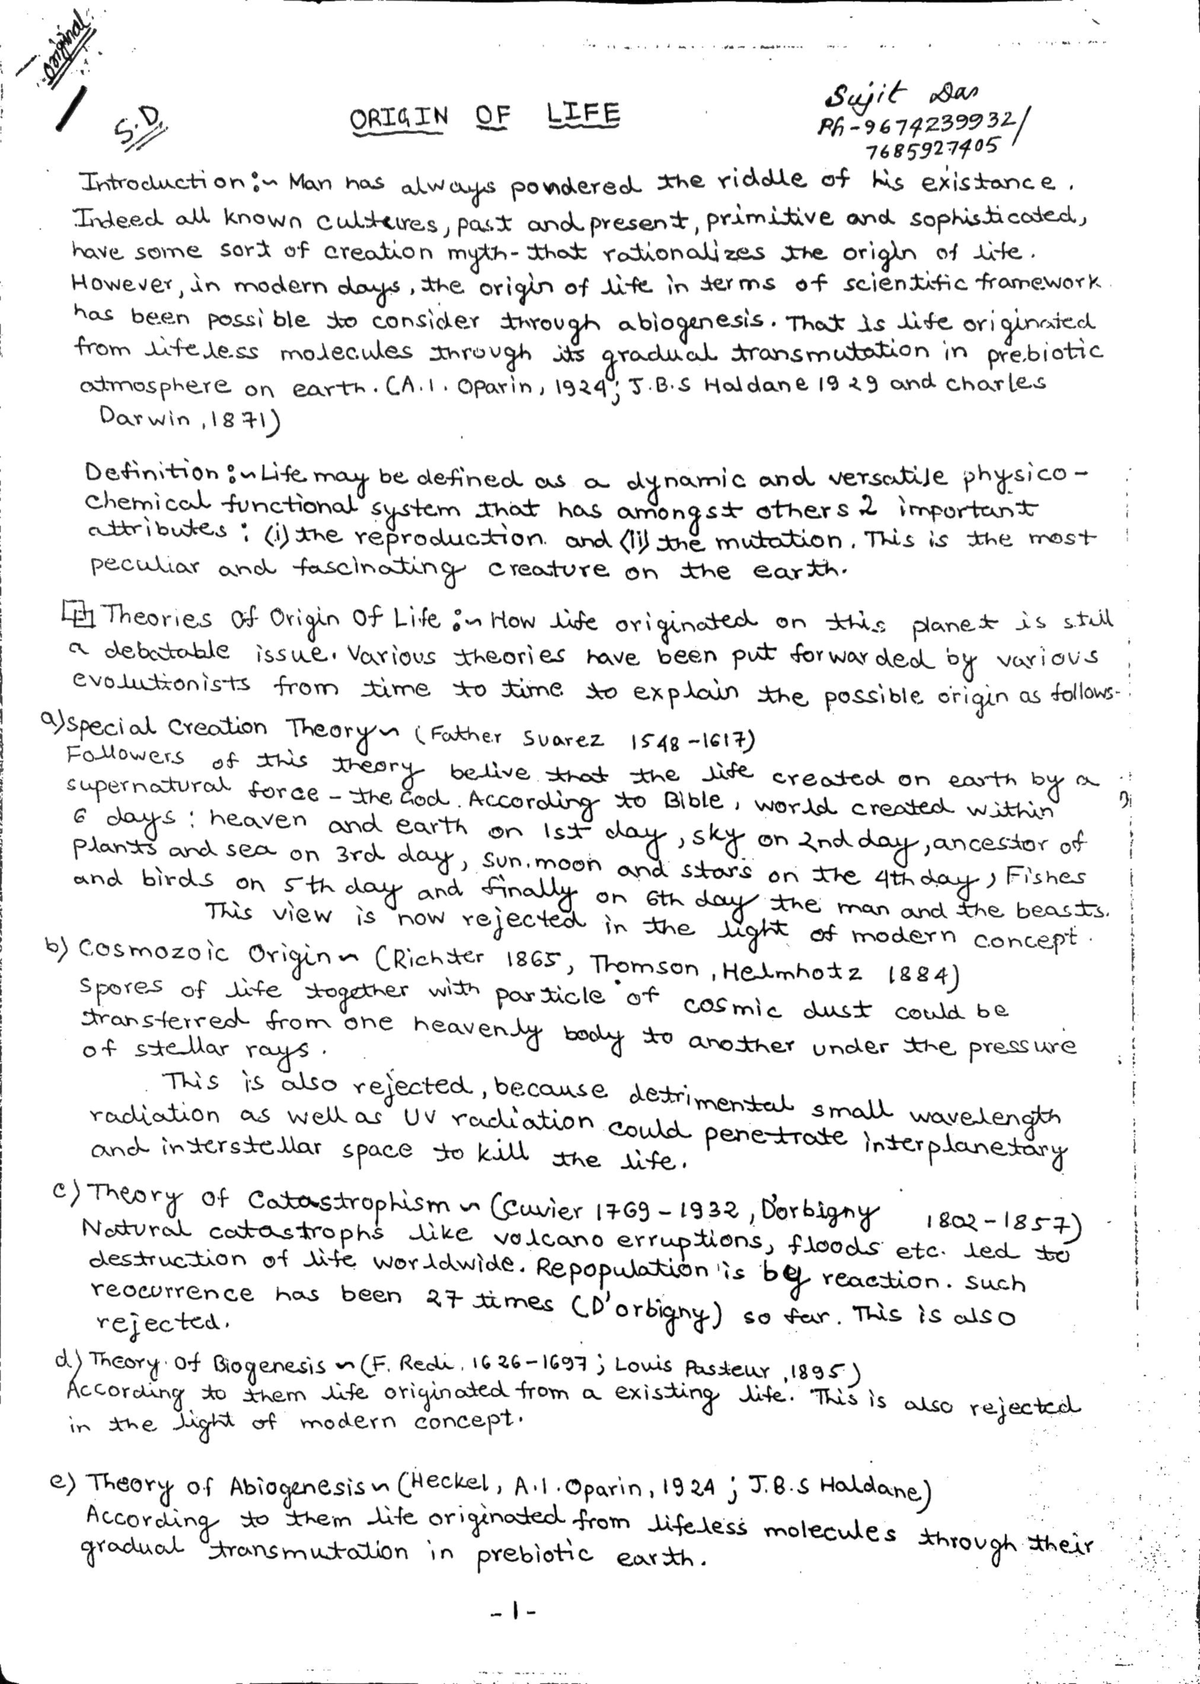 Original
S.D.
ORIGIN OF LIFE
Sujit Das
Ph-9674239932/
7685927405
Introduction:~ Man has always pondered the riddle of his existance.
Indeed all known cultures, past and present, primitive and sophisticated,
have some sort of creation myth-that rationalizes the origin of life.
However, in modern days, the origin of life in terms of scientific framework
has been possible to consider through abiogenesis. That is life originated
from lifeless molecules through its gradual transmutation in prebiotic
atmosphere on earth. (A.I. Oparin, 1924; J.B.S Haldane 1929 and Charles
Darwin, 1871)
Definition:~ Life may be defined as a dynamic and versatile physico-
chemical functional system that has amongst others 2 important
attributes: (i) the reproduction and (ii) the mutation. This is the most
peculiar and fascinating creature on the earth.
Theories Of Origin Of Life:~ How life originated on this planet is still
a debatable issue. Various theories have been put forwarded by various
evolutionists from time to time to explain the possible origin as follows-
a) Special Creation Theory~ (Father Suarez 1548-1617)
Followers of this theory belive that the life created on earth by a
supernatural force - the God. According to Bible, world created within
6 days: heaven and earth on 1st day, sky on 2nd day, ancestor of
plants and sea on 3rd day, sun, moon and stars on the 4th day, Fishes
and birds on 5th day and finally on 6th day the man and the beasts.
This view is now rejected in the light of modern concept.
b) Cosmozoic Origin~ (Richter 1865, Thomson, Helmhotz 1884)
Spores of life together with particle of cosmic dust could be
transferred from one heavenly body to another under the pressure
of stellar rays.
This is also rejected, because detrimental small wavelength
radiation as well as UV radiation could penetrate interplanetary
and interstellar space to kill the life.
c) Theory of Catastrophism~ (Cuvier 1769-1932, D'orbigny 1802-1857)
Natural catastrophs like volcano erruptions, floods etc. led to
destruction of life worldwide. Repopulation is by reaction. such
reocurrence has been 27 times (D'orbigny) so far. This is also
rejected.
d) Theory Of Biogenesis~ (F. Redi, 1626-1697; Louis Pasteur, 1895)
According to them life originated from a existing life. This is also rejected
in the light of modern concept.
e) Theory of Abiogenesis~ (Heckel, A.I. Oparin, 1924; J.B.S Haldane)
According to them life originated from lifeless molecules through their
gradual transmutation in prebiotic earth.
-1-